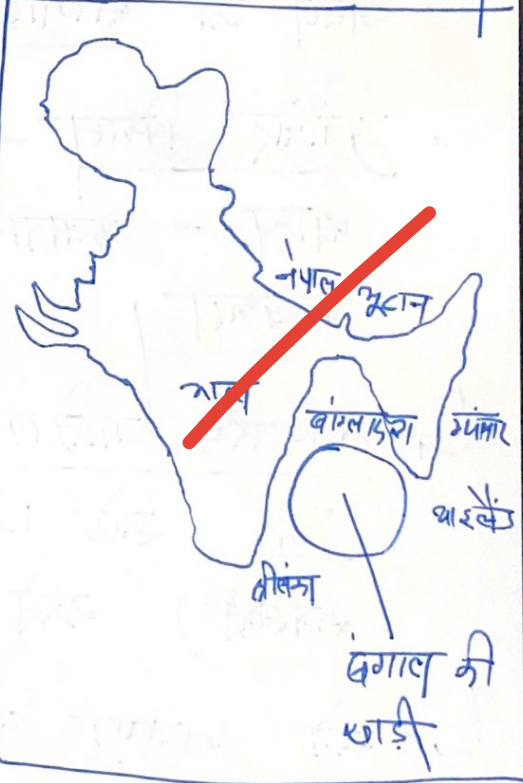 नेपाल
भूटान
भारत
बांग्लादेश
म्यांमार
थाईलैंड
श्रीलंका
बंगाल की
खाड़ी